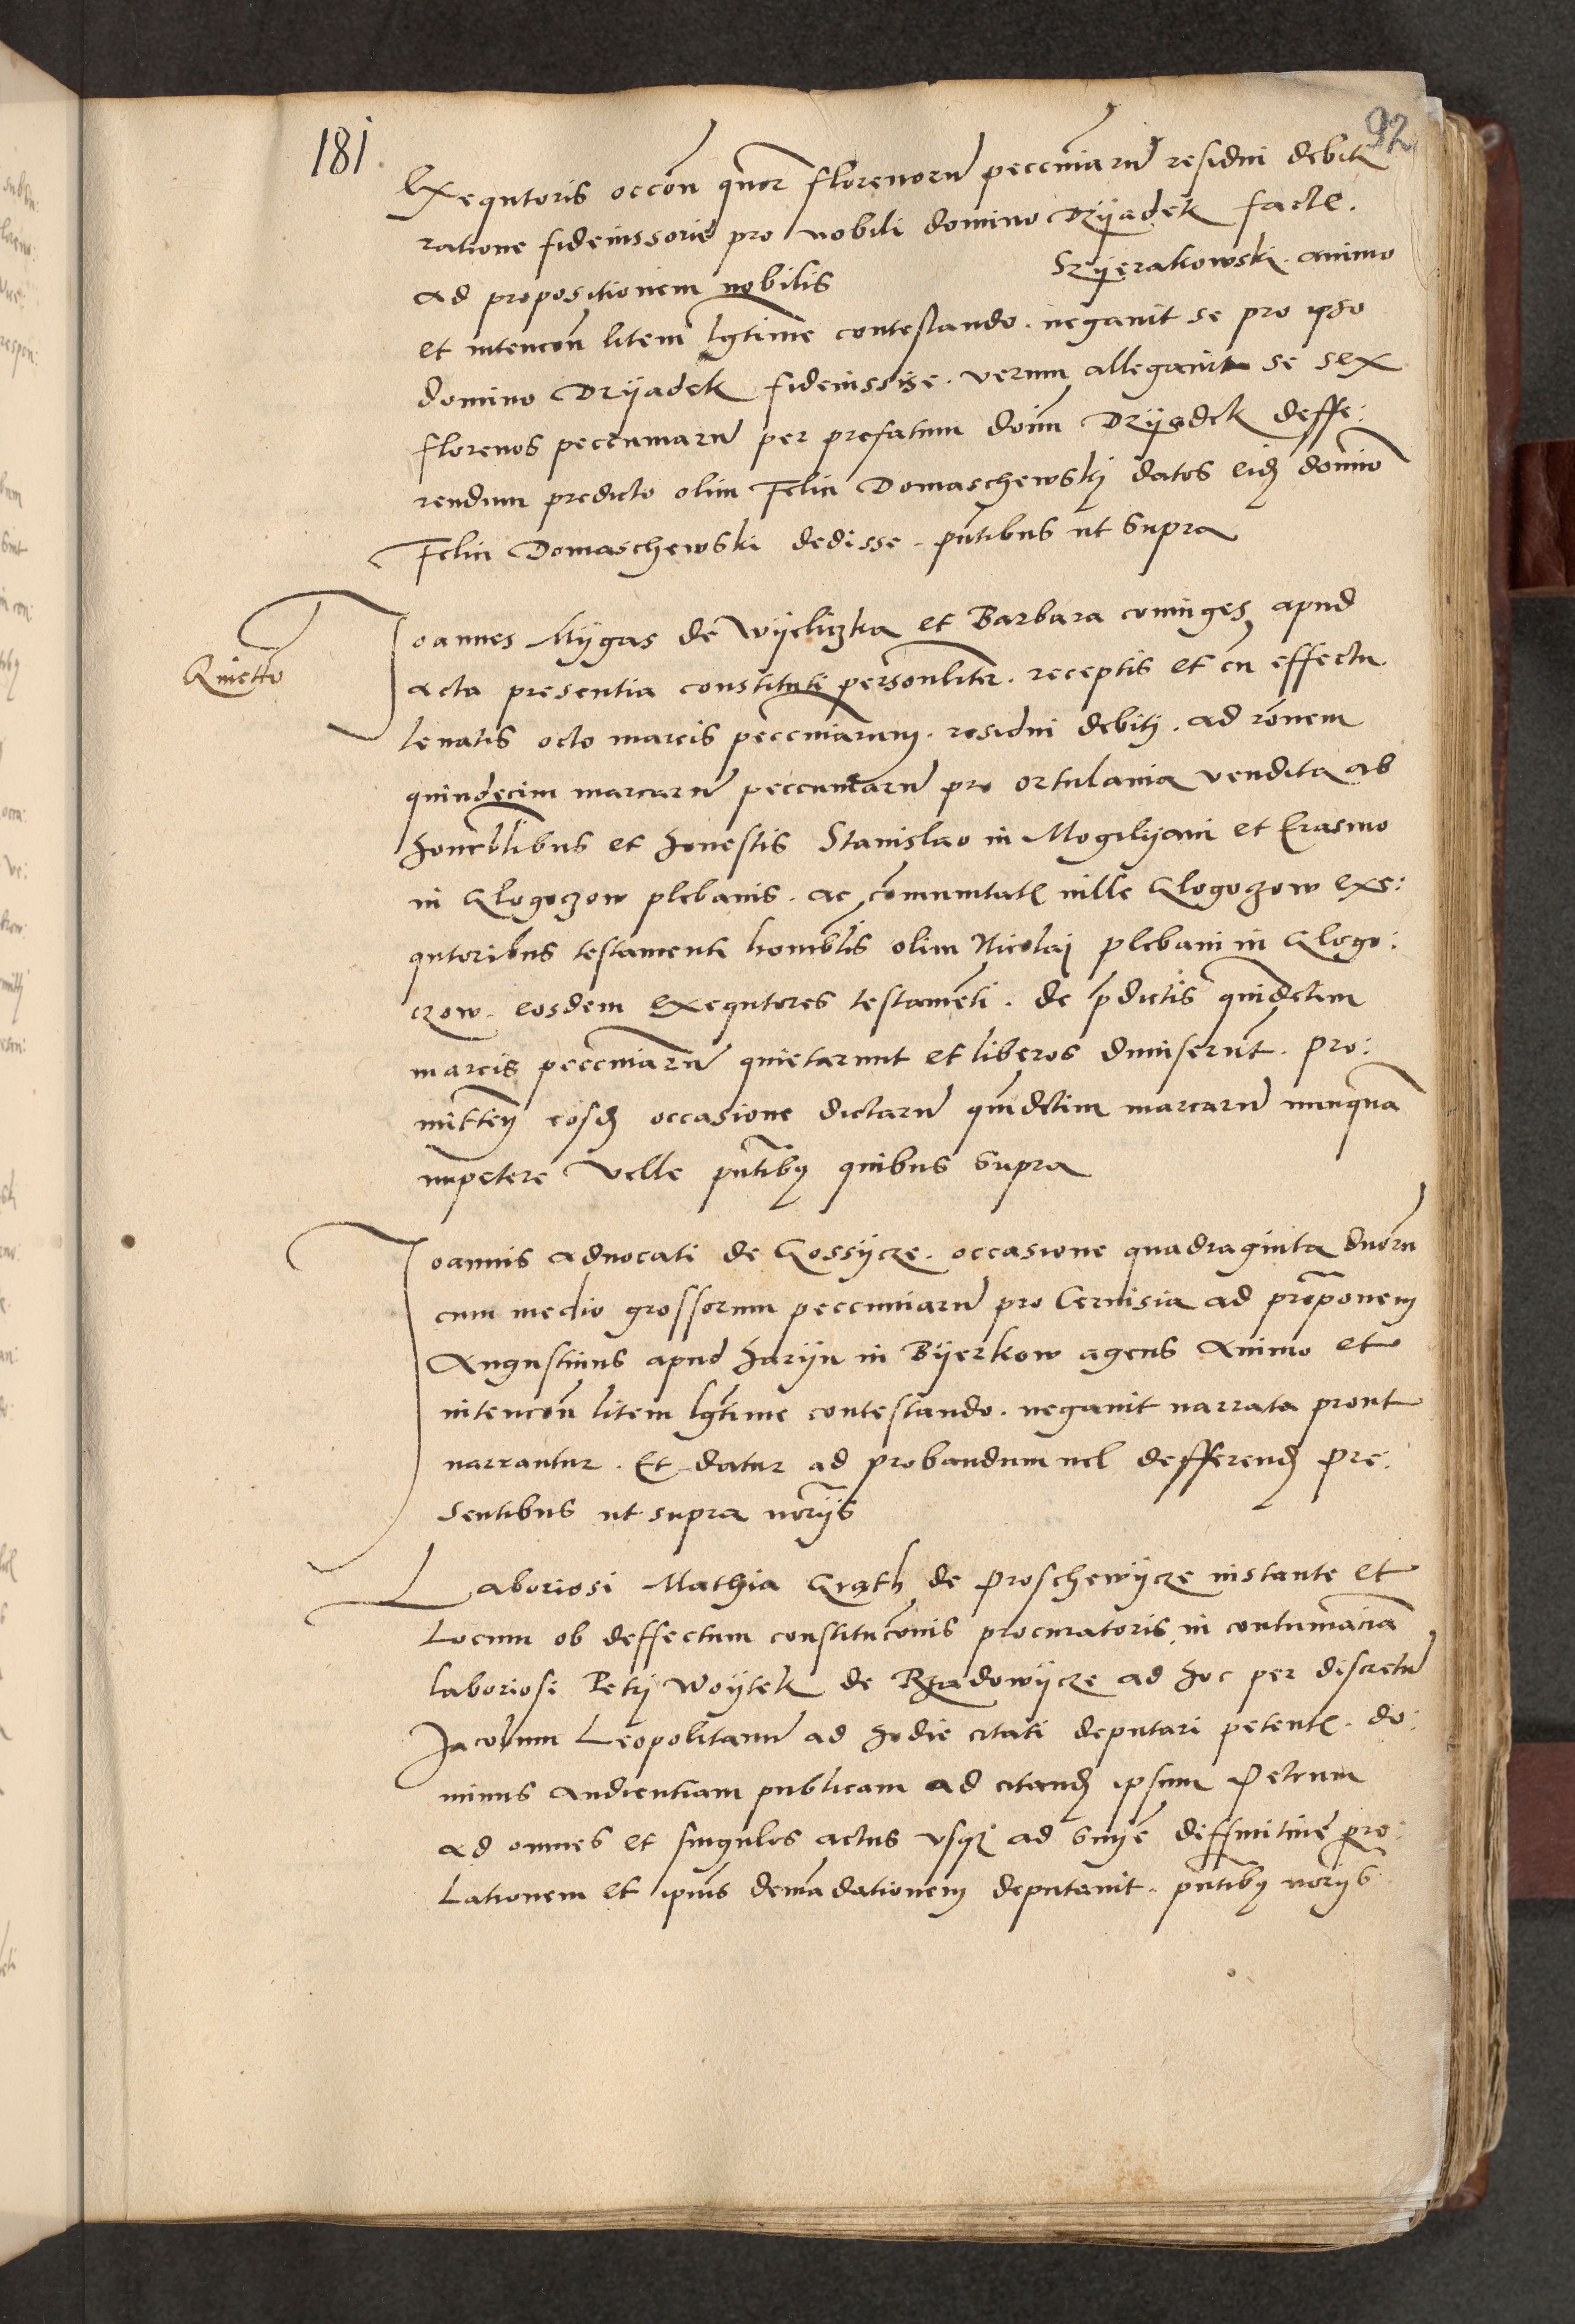 181
92
Exequtoris occon quor florenorum peccuniarum residui debiti
ratione fideiussorie pro nobili domino Dzyadek facte.
ad propositionem nobilis Szyerakowski. animo
et intencon litem lgtime contestando. negauit se pro ipso
domino Dzyadek fideiussisse. verum allegauit se sex
florenos peccuniarum per prefatum dom Dzyadek deffe:
rendum predicto olim Felici Domaschewskj datos eid domino
Felici Domaschewski dedisse. pntibus ut supra
Quietto
Joannes Mygas de Wyeliczka et Barbara coniuges apud
acta presentia constituti personliter. receptis et cu effectu
leuatis octo marcis peccuniarum. residui debiti. ad ronem
quindecim marcarum peccuniarum pro ortulania vendita ab
honorblibus et honestis Stanislao in Mogilyani et Erasmo
in Glogoczow plebanis. ac comunitate uille Glogoczow exe:
qutoribus testamenti honorblis olim Nicolaj plebani in Glogo:
czow. eosdem exequtores testamenti. de pdictis quindecim
marcis peccuniarum quietarunt et liberos dimiserunt. pro:
mitten eosd occasione dictarum quindecim marcarum nunquam
impetere velle pntibus quibus supra
Joannis aduocati de Gossycze. occasione quadraginta duorum
cum medio grossorum peccuniarum pro Ceruisia ad proponem
Augustinus apud Haryn in Byerkow agens animo et
intencon litem lgtime contestando. negauit narrata prout
narrantur. Et datur ad probandum uel defferend pre:
sentibus ut supra norijs
Laboriosi Mathia Grath de Proschewycze instante et
Locum ob deffectum constituconis procuratoris in contumaciam
laboriosi Petrj Woytek de Rzadowycze ad hoc per discretum
Jacobum Leopolitanum ad hodie citati deputari petente. do:
minus audientiam publicam ad citand ipsum Petrum
ad omnes et singulos actus vsque ad snye diffinitiue pro:
lationem et ipius demadationem deputauit. pntibus norijs